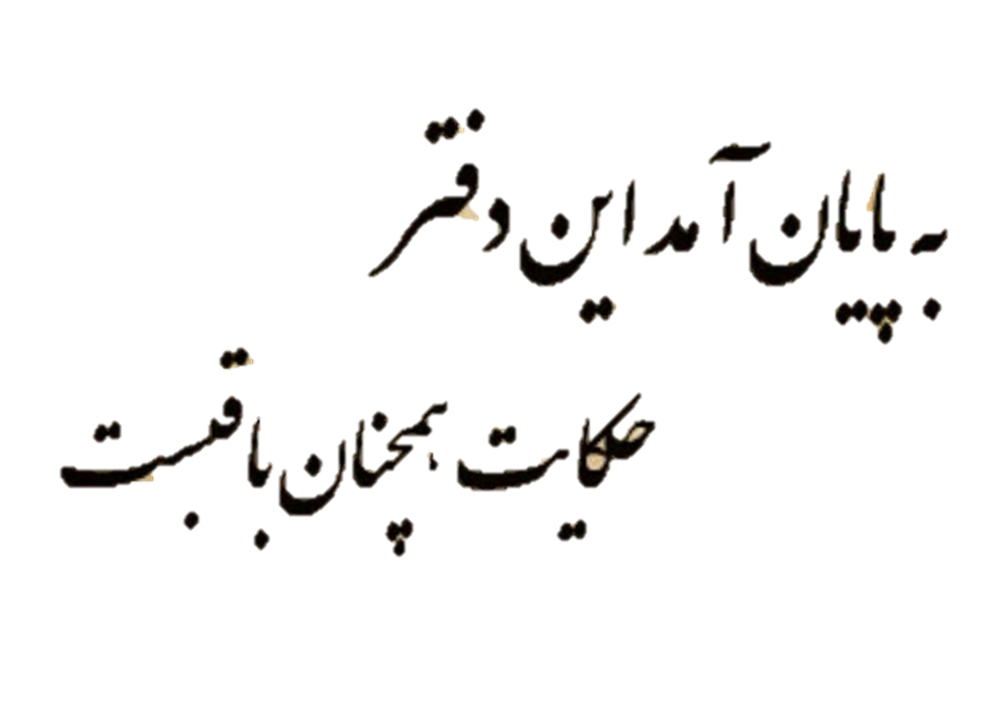 به پایان آمد این دفتر
حکایت همچنان باقیست